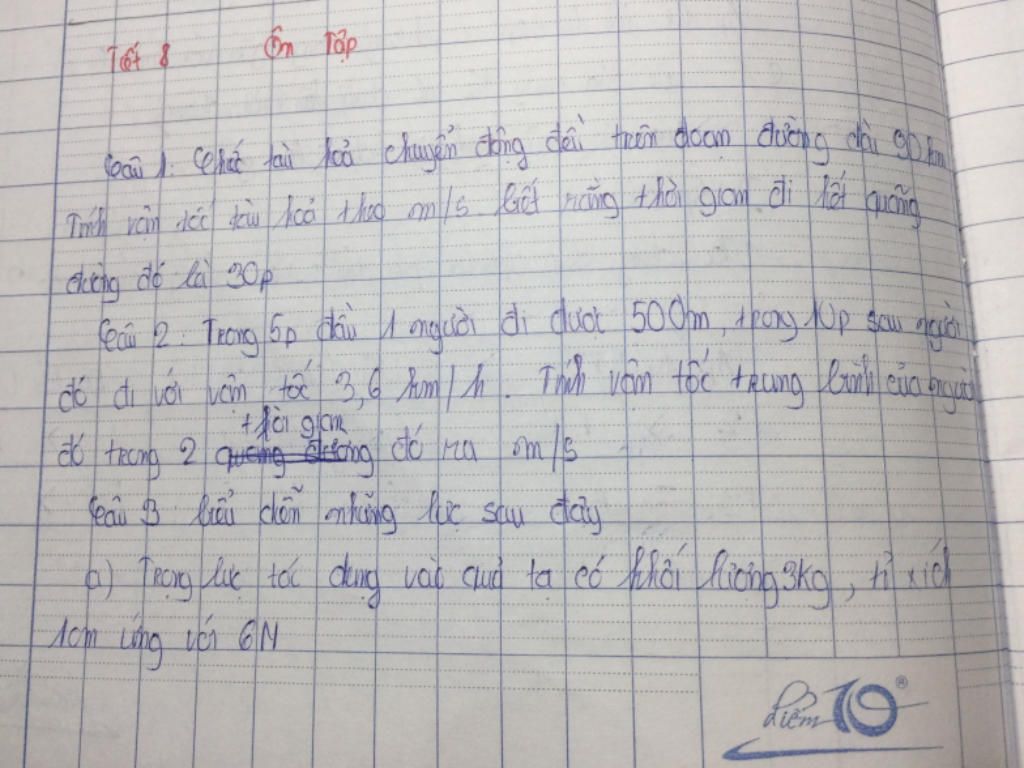 Tiết 8 Ôn Tập
Câu 1: Một tàu hoả chuyển động đều trên đoạn đường dài 90 km
Tính vận tốc tàu hoả theo m/s biết rằng thời gian đi hết quãng
đường đó là 30p
Câu 2: Trong 5p đầu 1 người đi được 500m, trong 10p sau người
đó đi với vân tốc 3,6 km/h. Tính vân tốc trung bình của người
thời gian
đó trong 2 quãng đường đó ra m/s
Câu 3 biểu diễn những lực sau đây
a) Trọng lực tác dụng vào quả tạ có khối lượng 3kg, tỉ xích
1cm ứng với 6N
điểm 10